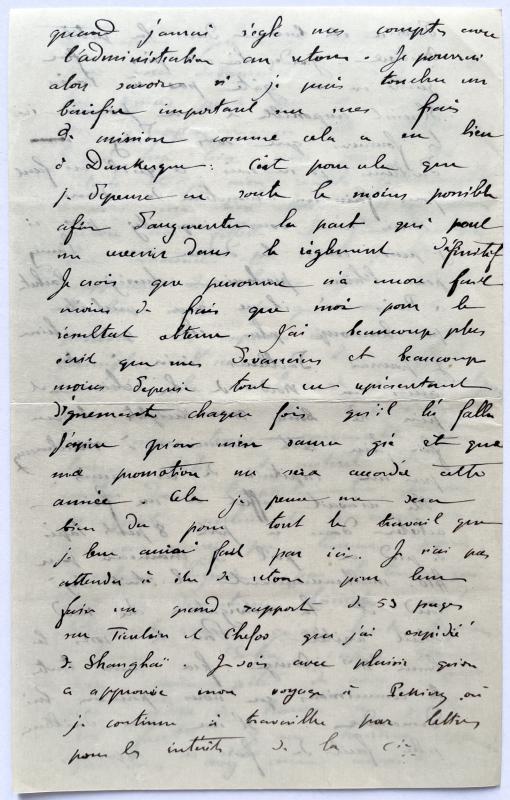 quand j'aurai réglé mes comptes avec
l'administration au retour. Je pourrai
alors savoir si je puis toucher un
bénéfice important sur mes frais
de mission comme cela a eu lieu
à Dunkerque : c'est pour cela que
je dépense en route le moins possible
afin d'augmenter la part qui peut
me revenir dans le règlement définitif
Je crois que personne n'a encore fait
moins de frais que moi pour le
résultat obtenu. J'ai beaucoup plus
écrit que mes devanciers et beaucoup
moins dépensé tout en représentant
dignement chaque fois qu'il l'a fallu
J'espère qu'on m'en saura gré et que
ma promotion me sera accordée cette
année. Cela je pense me sera
bien dû pour tout le travail que
je leur aurai fait par ici. Je n'ai pas
attendu à être de retour pour leur
faire un grand rapport de 53 pages
sur Tientsin et Chefoo que j'ai expédié
de Shanghaï. Je vois avec plaisir qu'on
a approuvé mon voyage à Pekin, où
je continue à travailler par lettres
pour les intérêts de la cie